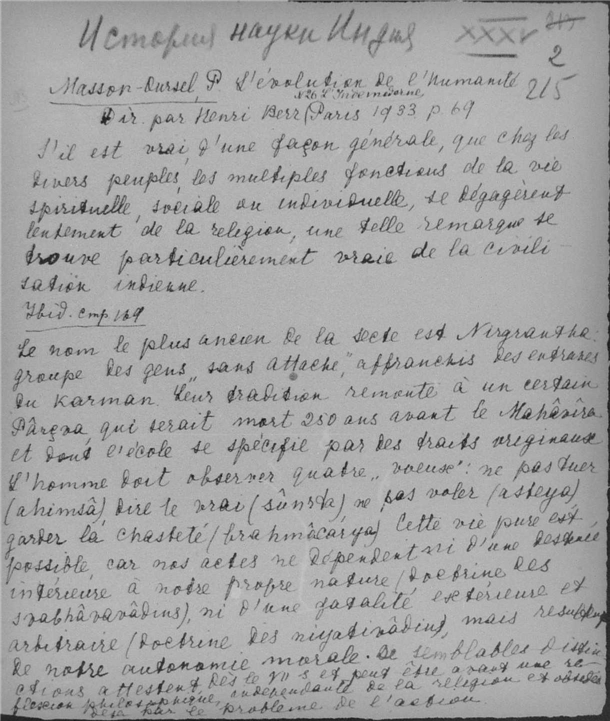 История науки Индия XXXV
2
215
Masson-Oursel, P. L'évolution de l'Humanité
N26 L'Inde moderne
Dir. par Henri Berr (Paris 1933 p. 69
S'il est vrai, d'une façon générale, que chez les
divers peuples, les multiples fonctions de la vie
spirituelle, sociale ou individuelle, se dégagèrent
lentement de la religion, une telle remarque se
trouve particulièrement vraie de la civili-
sation indienne.
Ibid. стр 169
Le nom le plus ancien de la secte est Nirgrantha:
groupe des gens „sans attache", affranchis des entraves
du karman. Leur tradition remonte à un certain
Pârçva, qui serait mort 250 ans avant le Mahâvîra
et dont l'école se spécifie par des traits originaux
L'homme doit observer quatre „voeuse": ne pas tuer
(ahimsâ) dire le vrai (sûnrta) ne pas voler (asteya)
garder la chasteté (brahmâcârya) Cette vie pure est
possible, car nos actes ne dépendent ni d'une destinée
intérieure à notre propre nature (doctrine des
svabhâvavâdins), ni d'une fatalité extérieure et
arbitraire (doctrine des niyativâdins), mais
de notre autonomie morale. De semblables distin
ctions attestent dès le VII s. et peut être avant une ré
flexion philosophique, indépendante de la religion et
par le problème de l'action.